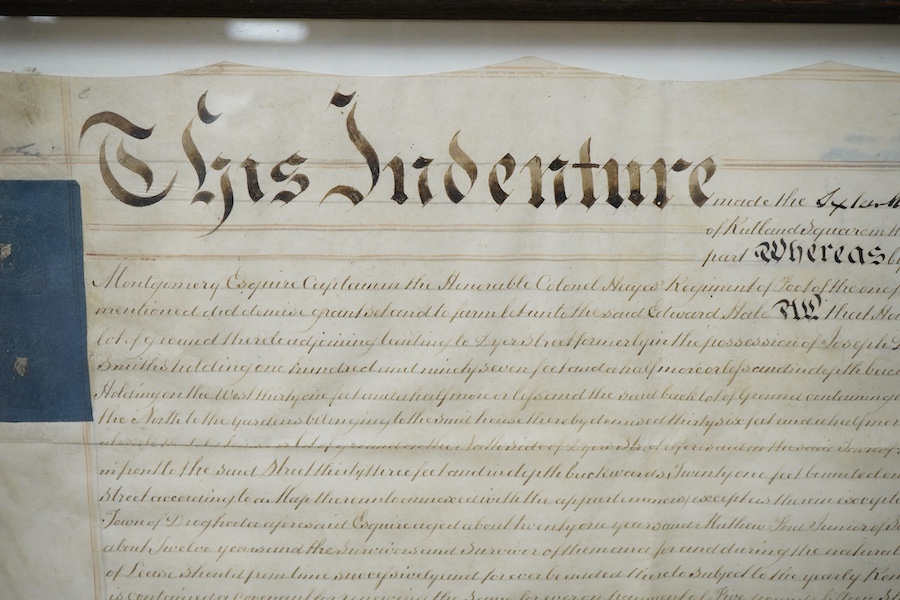 This Indenture made the
of Rutland Square in
part Whereas by
Montgomery Esquire Captain in the Honerable Colonel Hayes' Regiment of Foot of the one
mentioned did demise grant set and to farm let unto the said Edward Hale All that
lot of ground thereto adjoining leading to Dyer street formerly in the possession of Joseph
Smiths holding one hundred and ninety seven feet and a half more or less and in depth
Holding on the West thirty one feet and a half more or less and the said back lot of Ground containing
the North to the Gardens belonging to the said house thereby demised thirty six feet and a half more
ground on the North side of Dyer Street aforesaid in the said Town of
in front to the said Street thirty three feet and in depth backwards Twenty one feet bounded on
Street according to a Map thereunto annexed with the appurtenances except as therein
Town of Drogheda aforesaid Esquire aged about twenty one years and Mathew Junior of
about Twelve years and the Survivors and Survivor of them and for and during the natural
of Lease should from time successively and for ever be added thereto subject to the yearly
is contained a covenant for renewing the same for ever on payment of Five